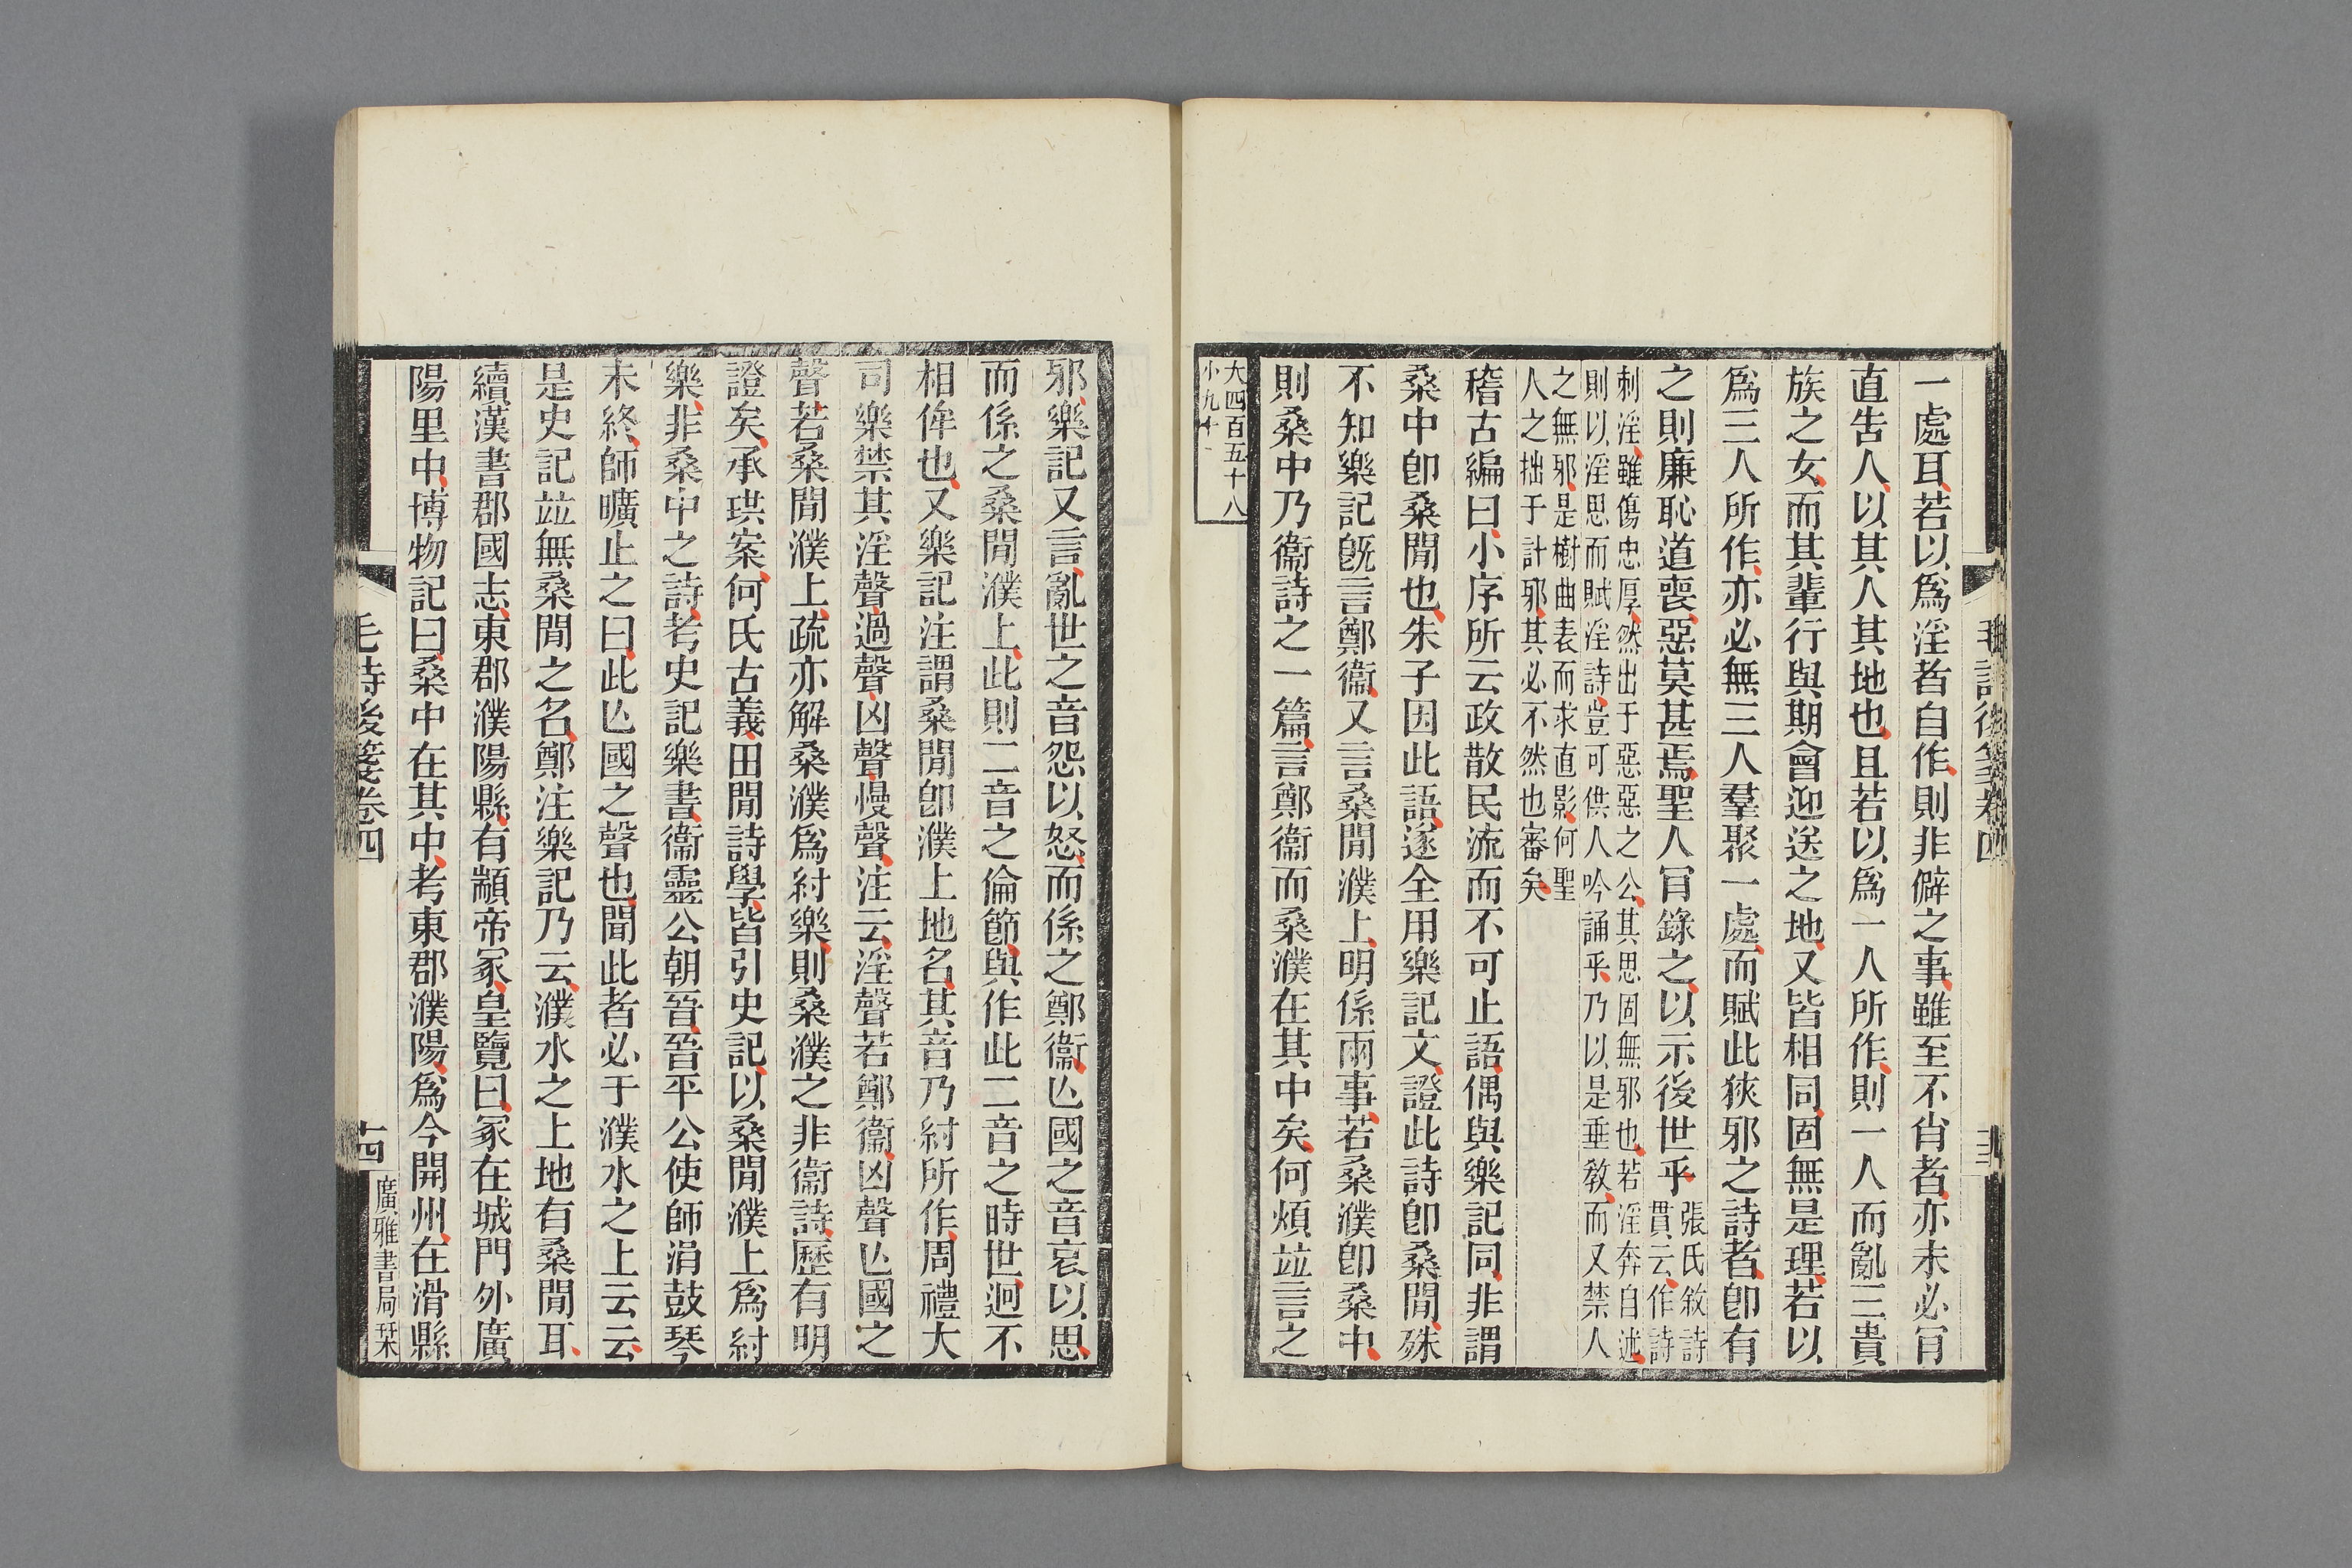 一處耳若以爲淫者自作則非僻之事雖至不肖者亦未必肎
直告人以其人其地也且若以爲一人所作則一人而亂三貴
族之女而其輩行與期會迎送之地又皆相同固無是理若以
爲三人所作亦必無三人羣聚一處而賦此狹邪之詩者卽有
之則廉恥道喪惡莫甚焉聖人肎錄之以示後世乎
張氏敘詩
貫云作詩
刺淫雖傷忠厚然出于惡惡之公其思固無邪也若淫奔自述
則以淫思而賦淫詩豈可供人吟誦乎乃以是垂敎而又禁人
之無邪是樹曲表而求直影何聖
人之拙于計邪其必不然也審矣
稽古編曰小序所云政散民流而不可止語偶與樂記同非謂
桑中卽桑閒也朱子因此語遂全用樂記文證此詩卽桑閒殊
不知樂記旣言鄭衞又言桑閒濮上明係兩事若桑濮卽桑中
則桑中乃衞詩之一篇言鄭衞而桑濮在其中矣何煩竝言之
大四百五十八
小九十一
毛詩後箋卷四
邪樂記又言亂世之音怨以怒而係之鄭衞亾國之音哀以思
而係之桑閒濮上此則二音之倫節與作此二音之時世迥不
相侔也又樂記注謂桑閒卽濮上地名其音乃紂所作周禮大
司樂禁其淫聲過聲凶聲慢聲注云淫聲若鄭衞凶聲亾國之
聲若桑閒濮上疏亦解桑濮爲紂樂則桑濮之非衞詩歷有明
證矣承珙案何氏古義田閒詩學皆引史記以桑閒濮上爲紂
樂非桑中之詩考史記樂書衞靈公朝晉晉平公使師涓鼓琴
未終師曠止之曰此亾國之聲也聞此者必于濮水之上云云
是史記竝無桑閒之名鄭注樂記乃云濮水之上地有桑閒耳
續漢書郡國志東郡濮陽縣有顓帝冢皇覽曰冢在城門外廣
陽里中博物記曰桑中在其中考東郡濮陽爲今開州在滑縣
毛詩後箋卷四
十四
廣雅書局栞